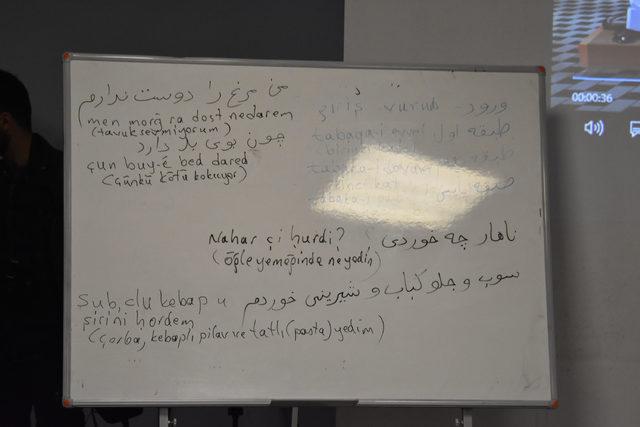 من مرغ را دوست ندارم
(men morğ ra dost nedarem
(tavuk sevmiyorum)
چون بوی بد دارد
çun buy-ê bed dared
(Çünkü kötü kokuyor)
giriş - vurud - ورود
tabaqa-i evvel طبقه اول
طبقه
Nahar çi hurdi? ناهار چه خوردی
(öğle yemeğinde ne yedin)
سوپ و چلو کباب و شیرینی خوردم
Sub, çlu kebap u
şirini hordem
(Çorba, kebaplı pilav ve tatlı (pasta) yedim)
00:00:36